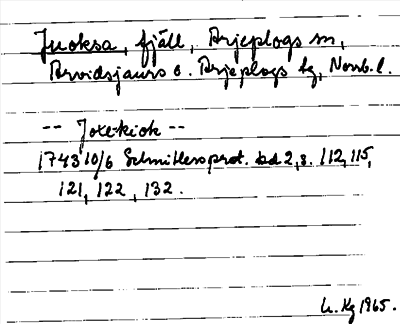 Juoksa, fjäll, Arjeplogs sn,
Arvidsjaurs o. Arjeplogs tg, Norrb. l.
-- Joxe-kiok --
1743 10/6 Schnitlersprot. bd 2, s. 112, 115,
121, 122, 132.
1965.